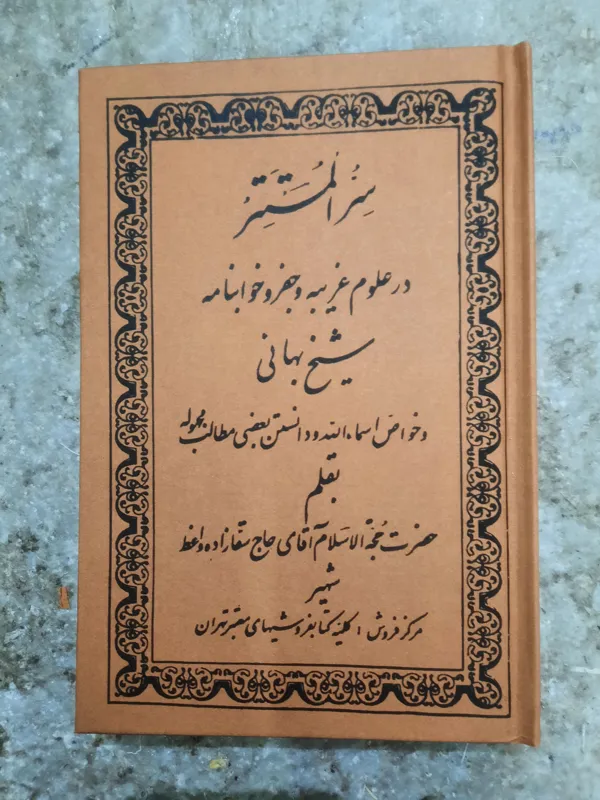 سِرُّ الْمُسْتَتِرْ
در علوم غریبه و جفر و خوابنامه
شیخ بهائی
و خواص اسماء الله و دانستن بعضی مطالب مجهوله
بقلم
حضرت حُجّة الاسلام آقای حاج سقازاده واعظ
شهیر
مرکز فروش : کلیّه کتابفروشیهای معتبر تهران